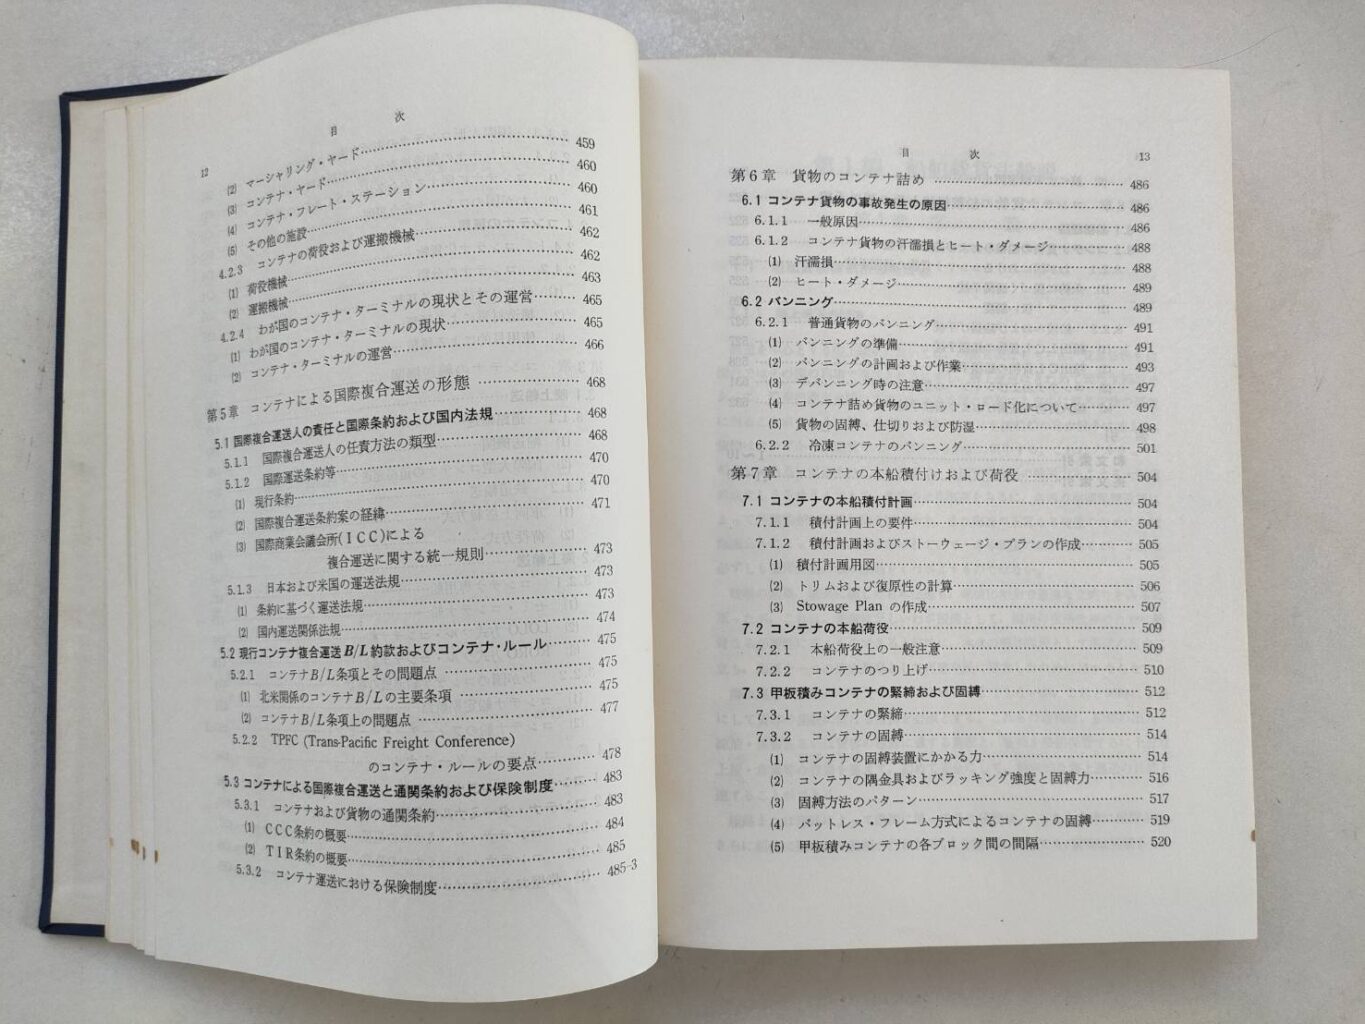 目　　　次
12
(2) マーシャリング・ヤード 459
(3) コンテナ・ヤード 460
(4) コンテナ・フレート・ステーション 460
(5) その他の施設 461
4.2.3 コンテナの荷役および運搬機械 462
(1) 荷役機械 462
(2) 運搬機械 463
4.2.4 わが国のコンテナ・ターミナルの現状とその運営 465
(1) わが国のコンテナ・ターミナルの現状 465
(2) コンテナ・ターミナルの運営 466
第5章 コンテナによる国際複合運送の形態 468
5.1 国際複合運送人の責任と国際条約および国内法規 468
5.1.1 国際複合運送人の任責方法の類型 468
5.1.2 国際運送条約等 470
(1) 現行条約 470
(2) 国際複合運送条約案の経緯 471
(3) 国際商業会議会所(ICC)による
複合運送に関する統一規則 473
5.1.3 日本および米国の運送法規 473
(1) 条約に基づく運送法規 473
(2) 国内運送関係法規 474
5.2 現行コンテナ複合運送B/L約款およびコンテナ・ルール 475
5.2.1 コンテナB/L条項とその問題点 475
(1) 北米関係のコンテナB/Lの主要条項 475
(2) コンテナB/L条項上の問題点 477
5.2.2 TPFC (Trans-Pacific Freight Conference)
のコンテナ・ルールの要点 478
5.3 コンテナによる国際複合運送と通関条約および保険制度 483
5.3.1 コンテナおよび貨物の通関条約 483
(1) CCC条約の概要 484
(2) TIR条約の概要 485
5.3.2 コンテナ運送における保険制度 485-3
目　　　次
13
第6章 貨物のコンテナ詰め 486
6.1 コンテナ貨物の事故発生の原因 486
6.1.1 一般原因 486
6.1.2 コンテナ貨物の汗濡損とヒート・ダメージ 488
(1) 汗濡損 488
(2) ヒート・ダメージ 489
6.2 バンニング 489
6.2.1 普通貨物のバンニング 491
(1) バンニングの準備 491
(2) バンニングの計画および作業 493
(3) デバンニング時の注意 497
(4) コンテナ詰め貨物のユニット・ロード化について 497
(5) 貨物の固縛、仕切りおよび防湿 498
6.2.2 冷凍コンテナのバンニング 501
第7章 コンテナの本船積付けおよび荷役 504
7.1 コンテナの本船積付計画 504
7.1.1 積付計画上の要件 504
7.1.2 積付計画およびストーウェージ・プランの作成 505
(1) 積付計画用図 505
(2) トリムおよび復原性の計算 506
(3) Stowage Plan の作成 507
7.2 コンテナの本船荷役 509
7.2.1 本船荷役上の一般注意 509
7.2.2 コンテナのつり上げ 510
7.3 甲板積みコンテナの緊締および固縛 512
7.3.1 コンテナの緊締 512
7.3.2 コンテナの固縛 514
(1) コンテナの固縛装置にかかる力 514
(2) コンテナの隅金具およびラッキング強度と固縛力 516
(3) 固縛方法のパターン 517
(4) バットレス・フレーム方式によるコンテナの固縛 519
(5) 甲板積みコンテナの各ブロック間の間隔 520